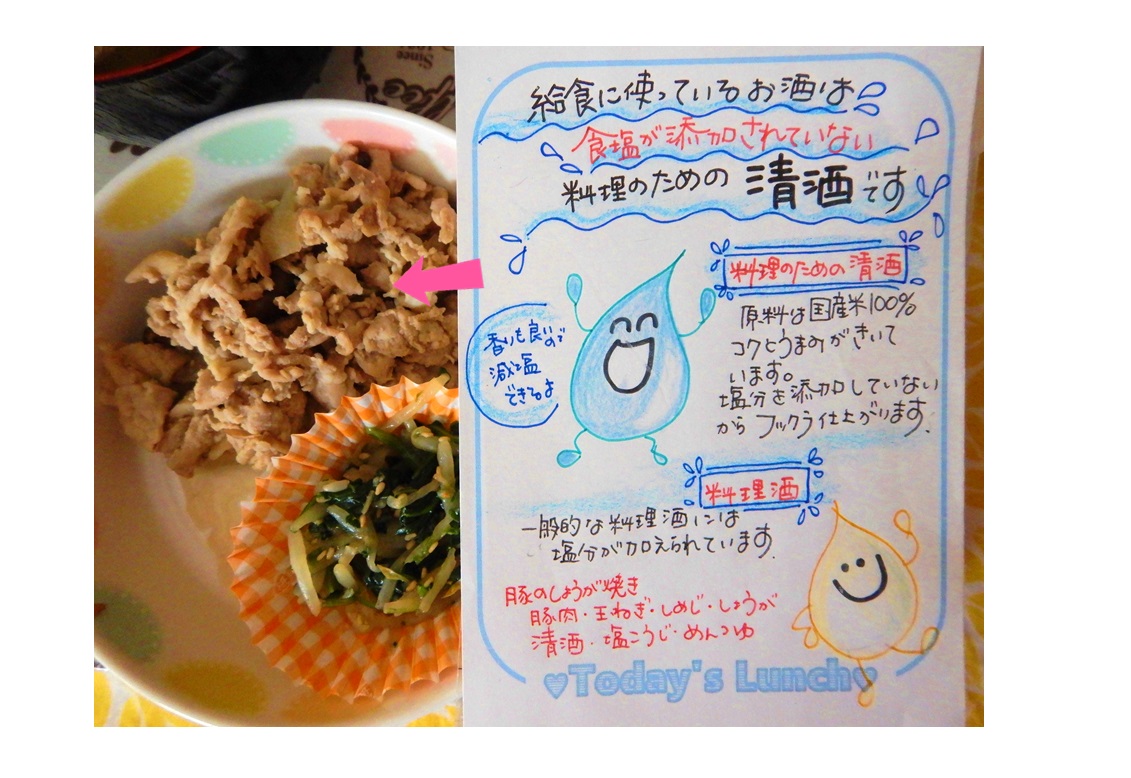 Since
給食に使っているお酒は
食塩が添加されていない
料理のための 清酒です
料理のための清酒
原料は国産米100%
コクとうまみがきいて
います。
塩分を添加していない
から フックラ仕上がります。
香りも良いので
減塩
できるよ
料理酒
一般的な料理酒には
塩分が加えられています。
豚のしょうが焼き
豚肉・玉ねぎ・しめじ・しょうが
清酒・塩こうじ・めんつゆ
♥Today's Lunch♥